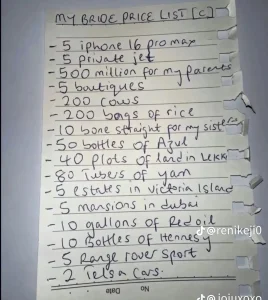 MY BRIDE PRICE LIST [C]
- 5 iphone 16 pro max
- 5 private jet
- 500 million for my parents
- 5 boutiques
- 200 cows
- 200 bags of rice
- 10 bone straight for my sisters
- 50 bottles of Azul
- 40 plots of land in LEKKI
- 80 Tubers of yam
- 5 estates in Victoria Island
- 5 mansions in dubai
- 10 gallons of Red oil
- 10 Bottles of Hennesy
- 5 Range rover sport
- 2 Tesla Cars.
@renikeji0
@jojuxoxo
No
Date